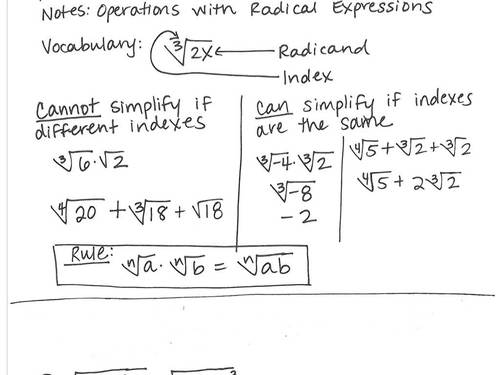 Notes: Operations with Radical Expressions
Vocabulary: ∛2x Radicand
Index
Cannot simplify if
different indexes
∛6 · √2
∜20 + ∛18 + √18
Can simplify if indexes
are the same
∛-4 · ∛2
∛-8
-2
∜5 + ∛2 + ∛2
∜5 + 2∛2
Rule: ⁿ√a · ⁿ√b = ⁿ√ab